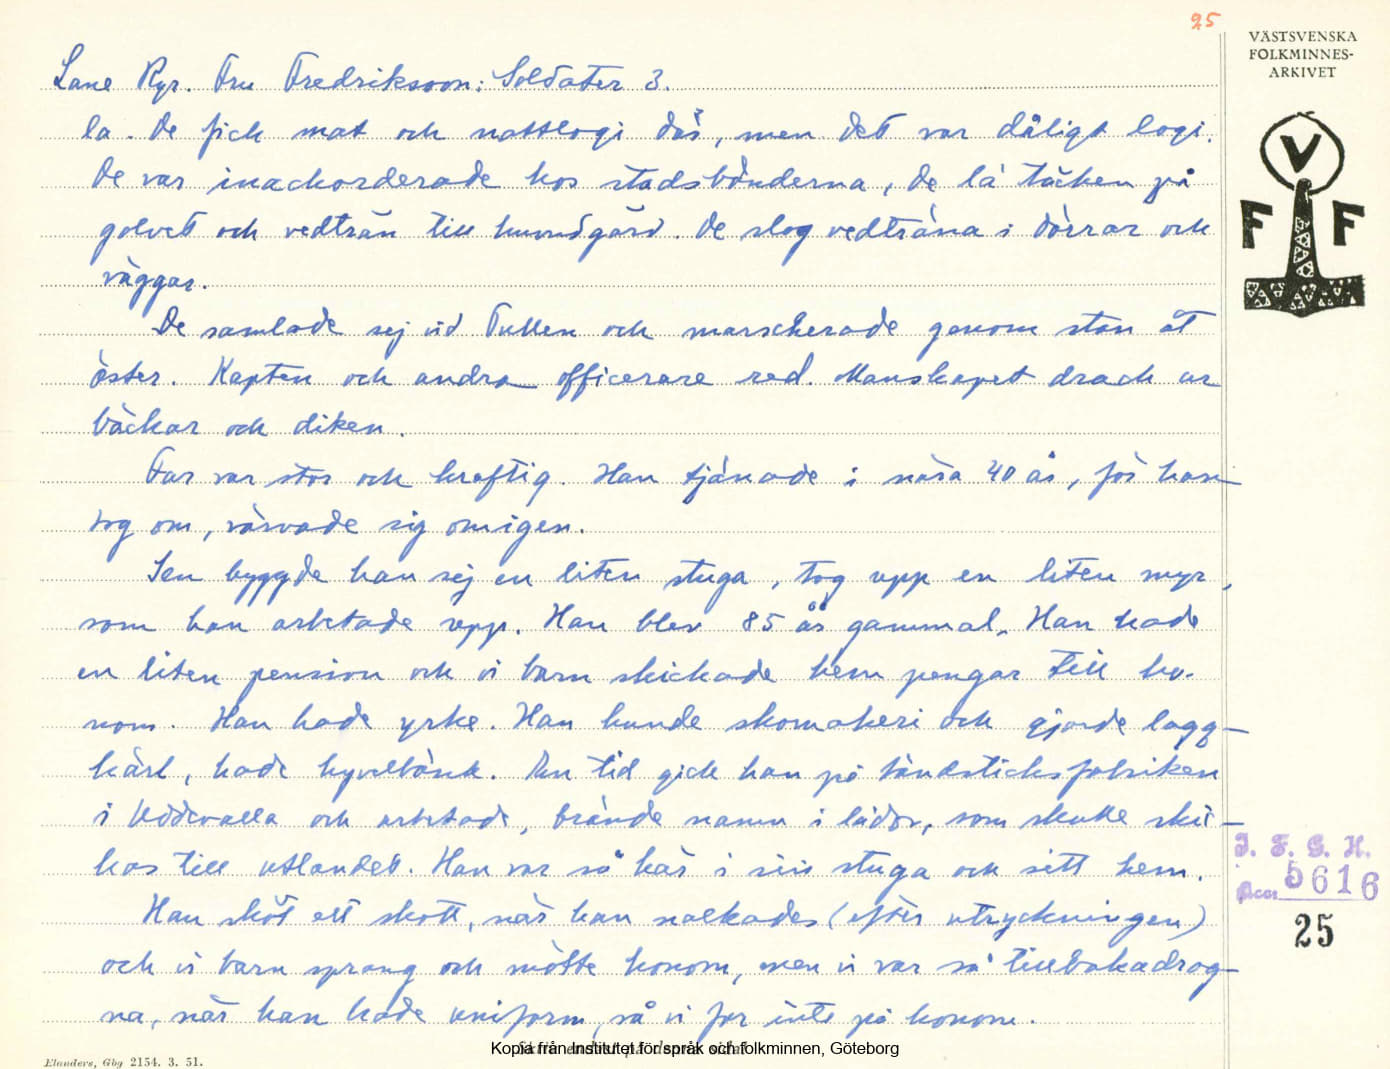 25
VÄSTSVENSKA
FOLKMINNES-
ARKIVET
V
F F
Lane Ryr. Fru Fredriksson: Soldater 3.
la. De fick mat och nattlogi där, men det var dåligt logi.
De var inackorderade hos stadsbönderna, de la täcken på
golvet och vedträn till huvudgärd. De slog vedträna i dörrar och
väggar.
De samlade sej vid Tullen och marscherade genom stan åt
öster. Kapten och andra officerare red. Manskapet drack ur
bäckar och diken.
Far var stor och kraftig. Han tjänade i nära 40 år, för han
tog om, värvade sig omigen.
Sen byggde han sej en liten stuga, tog upp en liten myr,
som han arbetade upp. Han blev 85 år gammal. Han hade
en liten pension och vi barn skickade hem pengar till ho-
nom. Han hade yrke. Han kunde skomakeri och gjorde lagg-
kärl, hade hyvelbänk. En tid gick han på tändsticksfabriken
i Uddevalla och arbetade, brände namn i lådor, som skulle skic-
kas till utlandet. Han var så kär i sin stuga och sitt hem.
Han sköt ett skott, när han nalkades (efter utryckningen)
och vi barn sprang och mötte honom, men vi var så tillbakadrag-
na, när han hade uniform, så vi for inte på honom.
I. F. G. H.
Acc. 5616
25
Kopia från Institutet för språk och folkminnen, Göteborg
Elanders, Gbg 2154. 3. 51.